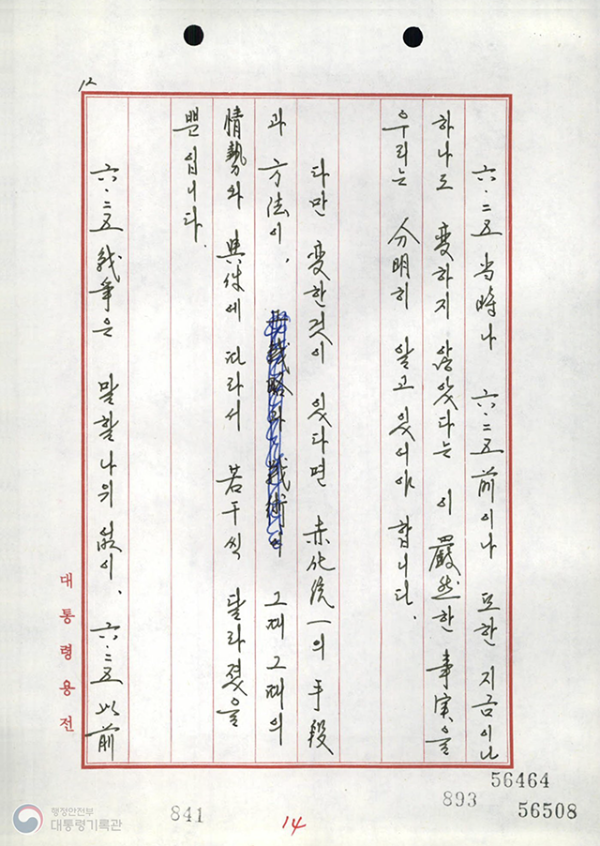 12
六·二五 当時나 六·二五前이나 또한 지금이나
하나도 変하지 않았다는 이 嚴然한 事実을
우리는 分明히 알고 있어야 합니다.
다만 変한것이 있다면 赤化統一의 手段
과 方法이, 그때 그때의
情勢와 与件에 따라서 若干씩 달라졌을
뿐입니다.
六·二五 戰争은 말할나위 없이, 六·二五 以前
대통령용전
56464
893
56508
841
14
행정안전부
대통령기록관